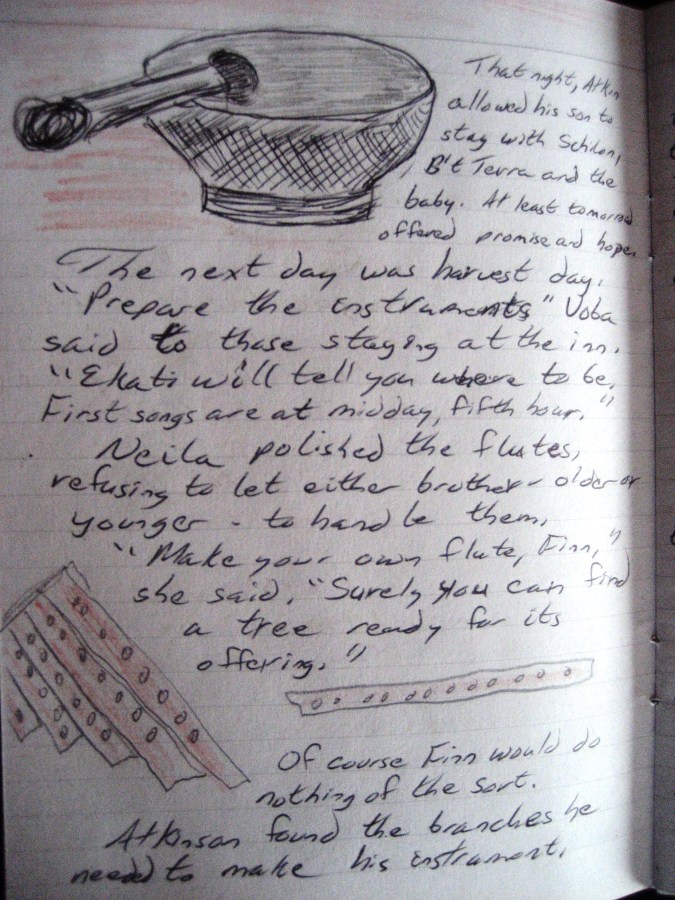 That night, Atkin
allowed his son to
stay with Schilon,
B't Terra and the
baby. At least tomorrow
offered promise and hope.
The next day was harvest day.
"Prepare the instruments" Voba
said to those staying at the inn.
"Ekati will tell you where to be.
First songs are at midday, fifth hour."
Neila polished the flutes,
refusing to let either brother - older or
younger - to handle them.
"Make your own flute, Finn,"
she said, "Surely you can find
a tree ready for its
offering."
Of course Finn would do
nothing of the sort.
Atkinson found the branches he
needed to make his instrument.